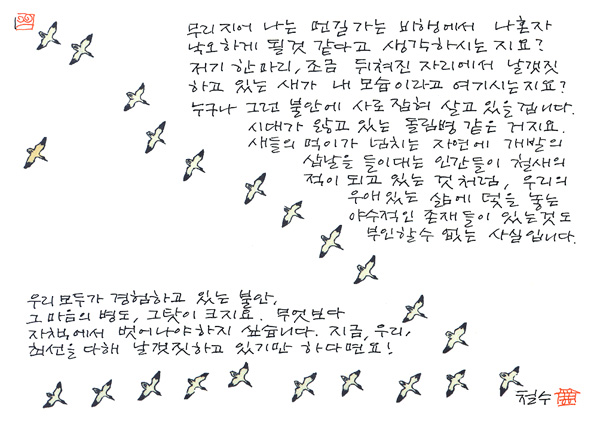 무리지어 나는 먼길가는 비행에서 나혼자
낙오하게 될것 같다고 생각하시는지요?
저기 한마리, 조금 뒤쳐진 자리에서 날갯짓
하고 있는 새가 내 모습이라고 여기시는지요?
누구나 그런 불안에 사로잡혀 살고 있을겁니다.
시대가 앓고 있는 돌림병 같은 거지요.
새들의 먹이가 넘치는 자연에 개발의
삽날을 들이대는 인간들이 철새의
적이 되고 있는 것처럼, 우리의
우애있는 삶에 덫을 놓는
야수적인 존재들이 있는것도
부인할수 없는 사실입니다.
우리모두가 경험하고 있는 불안,
그 마음의 병도, 그탓이 크지요. 무엇보다
자책에서 벗어나야하지 싶습니다. 지금, 우리,
최선을 다해 날갯짓하고 있기만 하다면요!
철수